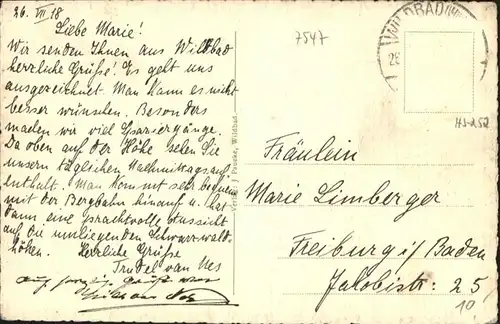 26. VII 18
Liebe Marie!
Wir senden Ihnen aus Wildbad
herzliche Grüße! Es geht uns
ausgezeichnet. Man kann es nicht
besser wünschen. Besonders
machen wir viel Spaziergänge.
Da oben auf der Höhe sehen Sie
unsern täglichen Nachmittagsauf-
enthalt. Man kommt sehr bequem
mit der Bergbahn hinauf u. hat
dann eine prachtvolle Aussicht
auf die umliegenden Schwarzwald-
höhen. Herzliche Grüße
Trudel van Nes
auch
7547
WILDBAD
HS-252
Wildbad
Fräulein
Marie Limberger
Freiburg i/Baden
Jakobistr. 25
10